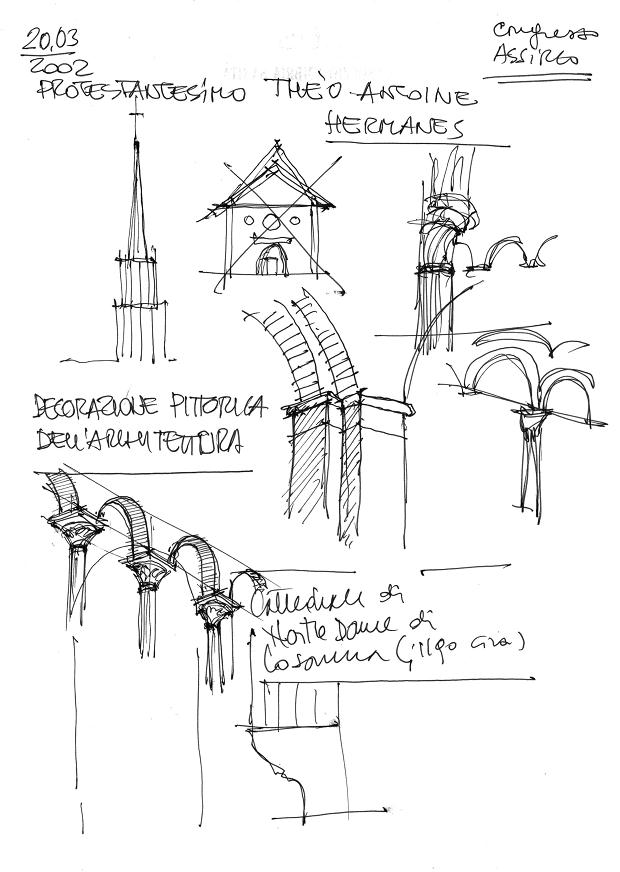 20.03
2002
Congresso
ASSIRCO
PROTESTANTESIMO THÈO-ANTOINE
HERMANES
DECORAZIONE PITTORICA
DELL'ARCHITETTURA
Cattedrale di
Notre Dame di
Losanna